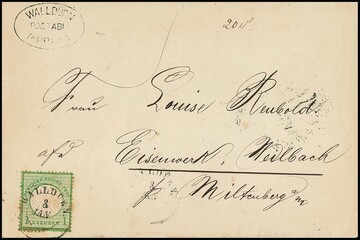 WALLDÜRN
POSTABL
20
Frau Louise Reubold
Eisenwerk Weilbach
Miltenberg a/m
WALLDÜRN
8
JAN
1
KREUZER